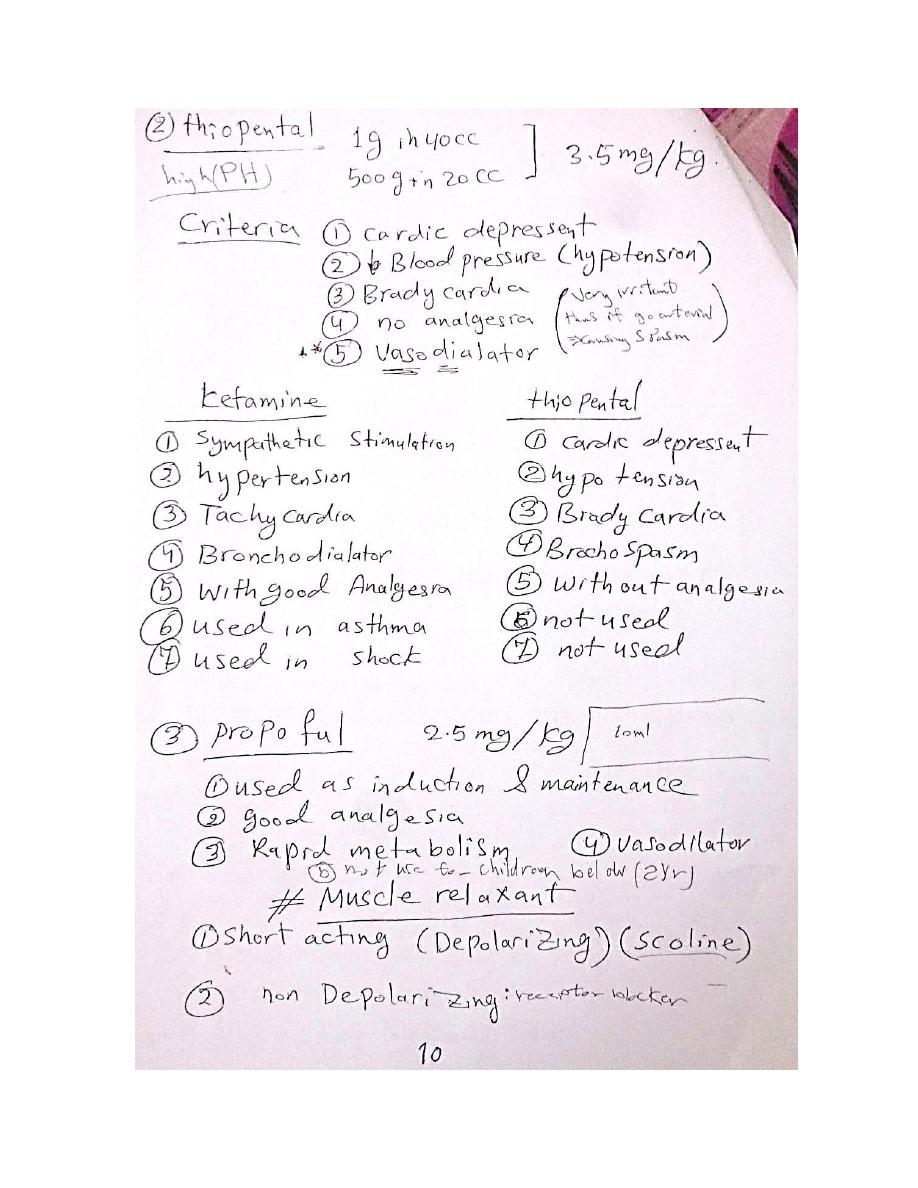 ② thiopental 1g in 40cc ] 3.5mg/kg.
high(PH) 500g in 20cc
Criteria ① cardic depressent
② ↓ Blood pressure (hypotension)
③ Brady cardia (very irritent
④ no analgesia thus if go arterial
* ⑤ Vasodialator causing spasm)
ketamine thiopental
① Sympathetic Stimulation ① cardic depressent
② hypertension ② hypo tension
③ Tachy cardia ③ Brady cardia
④ Bronchodialator ④ Brocho spasm
⑤ with good Analgesia ⑤ without analgesia
⑥ used in asthma ⑥ not used
⑦ used in shock ⑦ not used
③ propo ful 2.5 mg/kg 10ml
① used as induction & maintenance
② good analgesia
③ Rapid metabolism ④ vasodilator
⑤ not use for childreen below (2yr)
# Muscle relaxant
① Short acting (Depolarizing) (scoline)
② non Depolarizing: receptor blocker
10